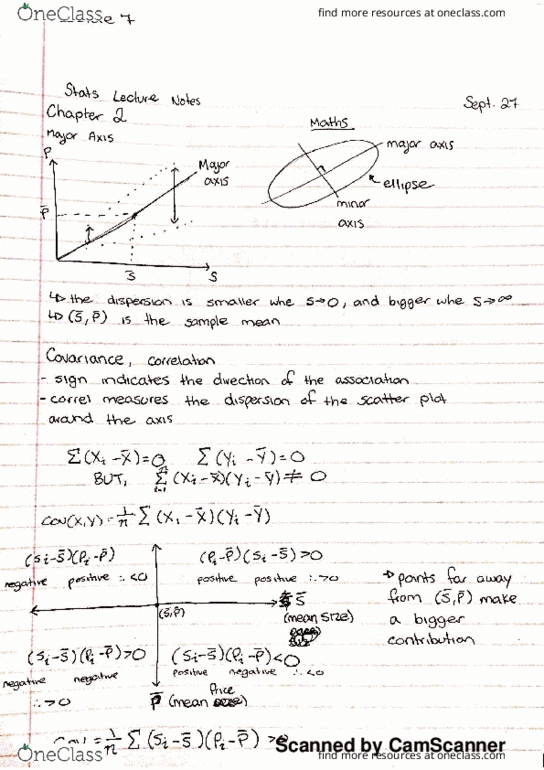 OneClass
find more resources at oneclass.com
Stats Lecture Notes
Sept. 27
Chapter 2
Major Axis
P
Major axis
P̄
S̄
S
Maths
major axis
ellipse
minor axis
↳ the dispersion is smaller whe S→0, and bigger whe S→∞
↳ (S̄, P̄) is the sample mean
Covariance, correlation
- sign indicates the direction of the association
- correl measures the dispersion of the scatter plot
around the axis
Σ(Xi - X̄)=0 Σ(Yi - Ȳ)=0
BUT, Σ (Xi - X̄)(Yi - Ȳ) ≠ 0
cov(X,Y) = 1/n Σ (Xi - X̄)(Yi - Ȳ)
(Si - S̄)(Pi - P̄)
negative positive ∴ <0
(Pi - P̄)(Si - S̄) >0
positive positive ∴ >0
(S̄, P̄)
S̄
(mean size)
→ points far away
from (S̄, P̄) make
a bigger
contribution
(Si - S̄)(Pi - P̄) >0
negative negative
∴ >0
(Si - S̄)(Pi - P̄) <0
positive negative ∴ <0
P̄ (mean Price
= 1/n Σ (Si - S̄)(Pi - P̄) >0
Scanned by CamScanner
OneClass
find more resources at oneclass.com